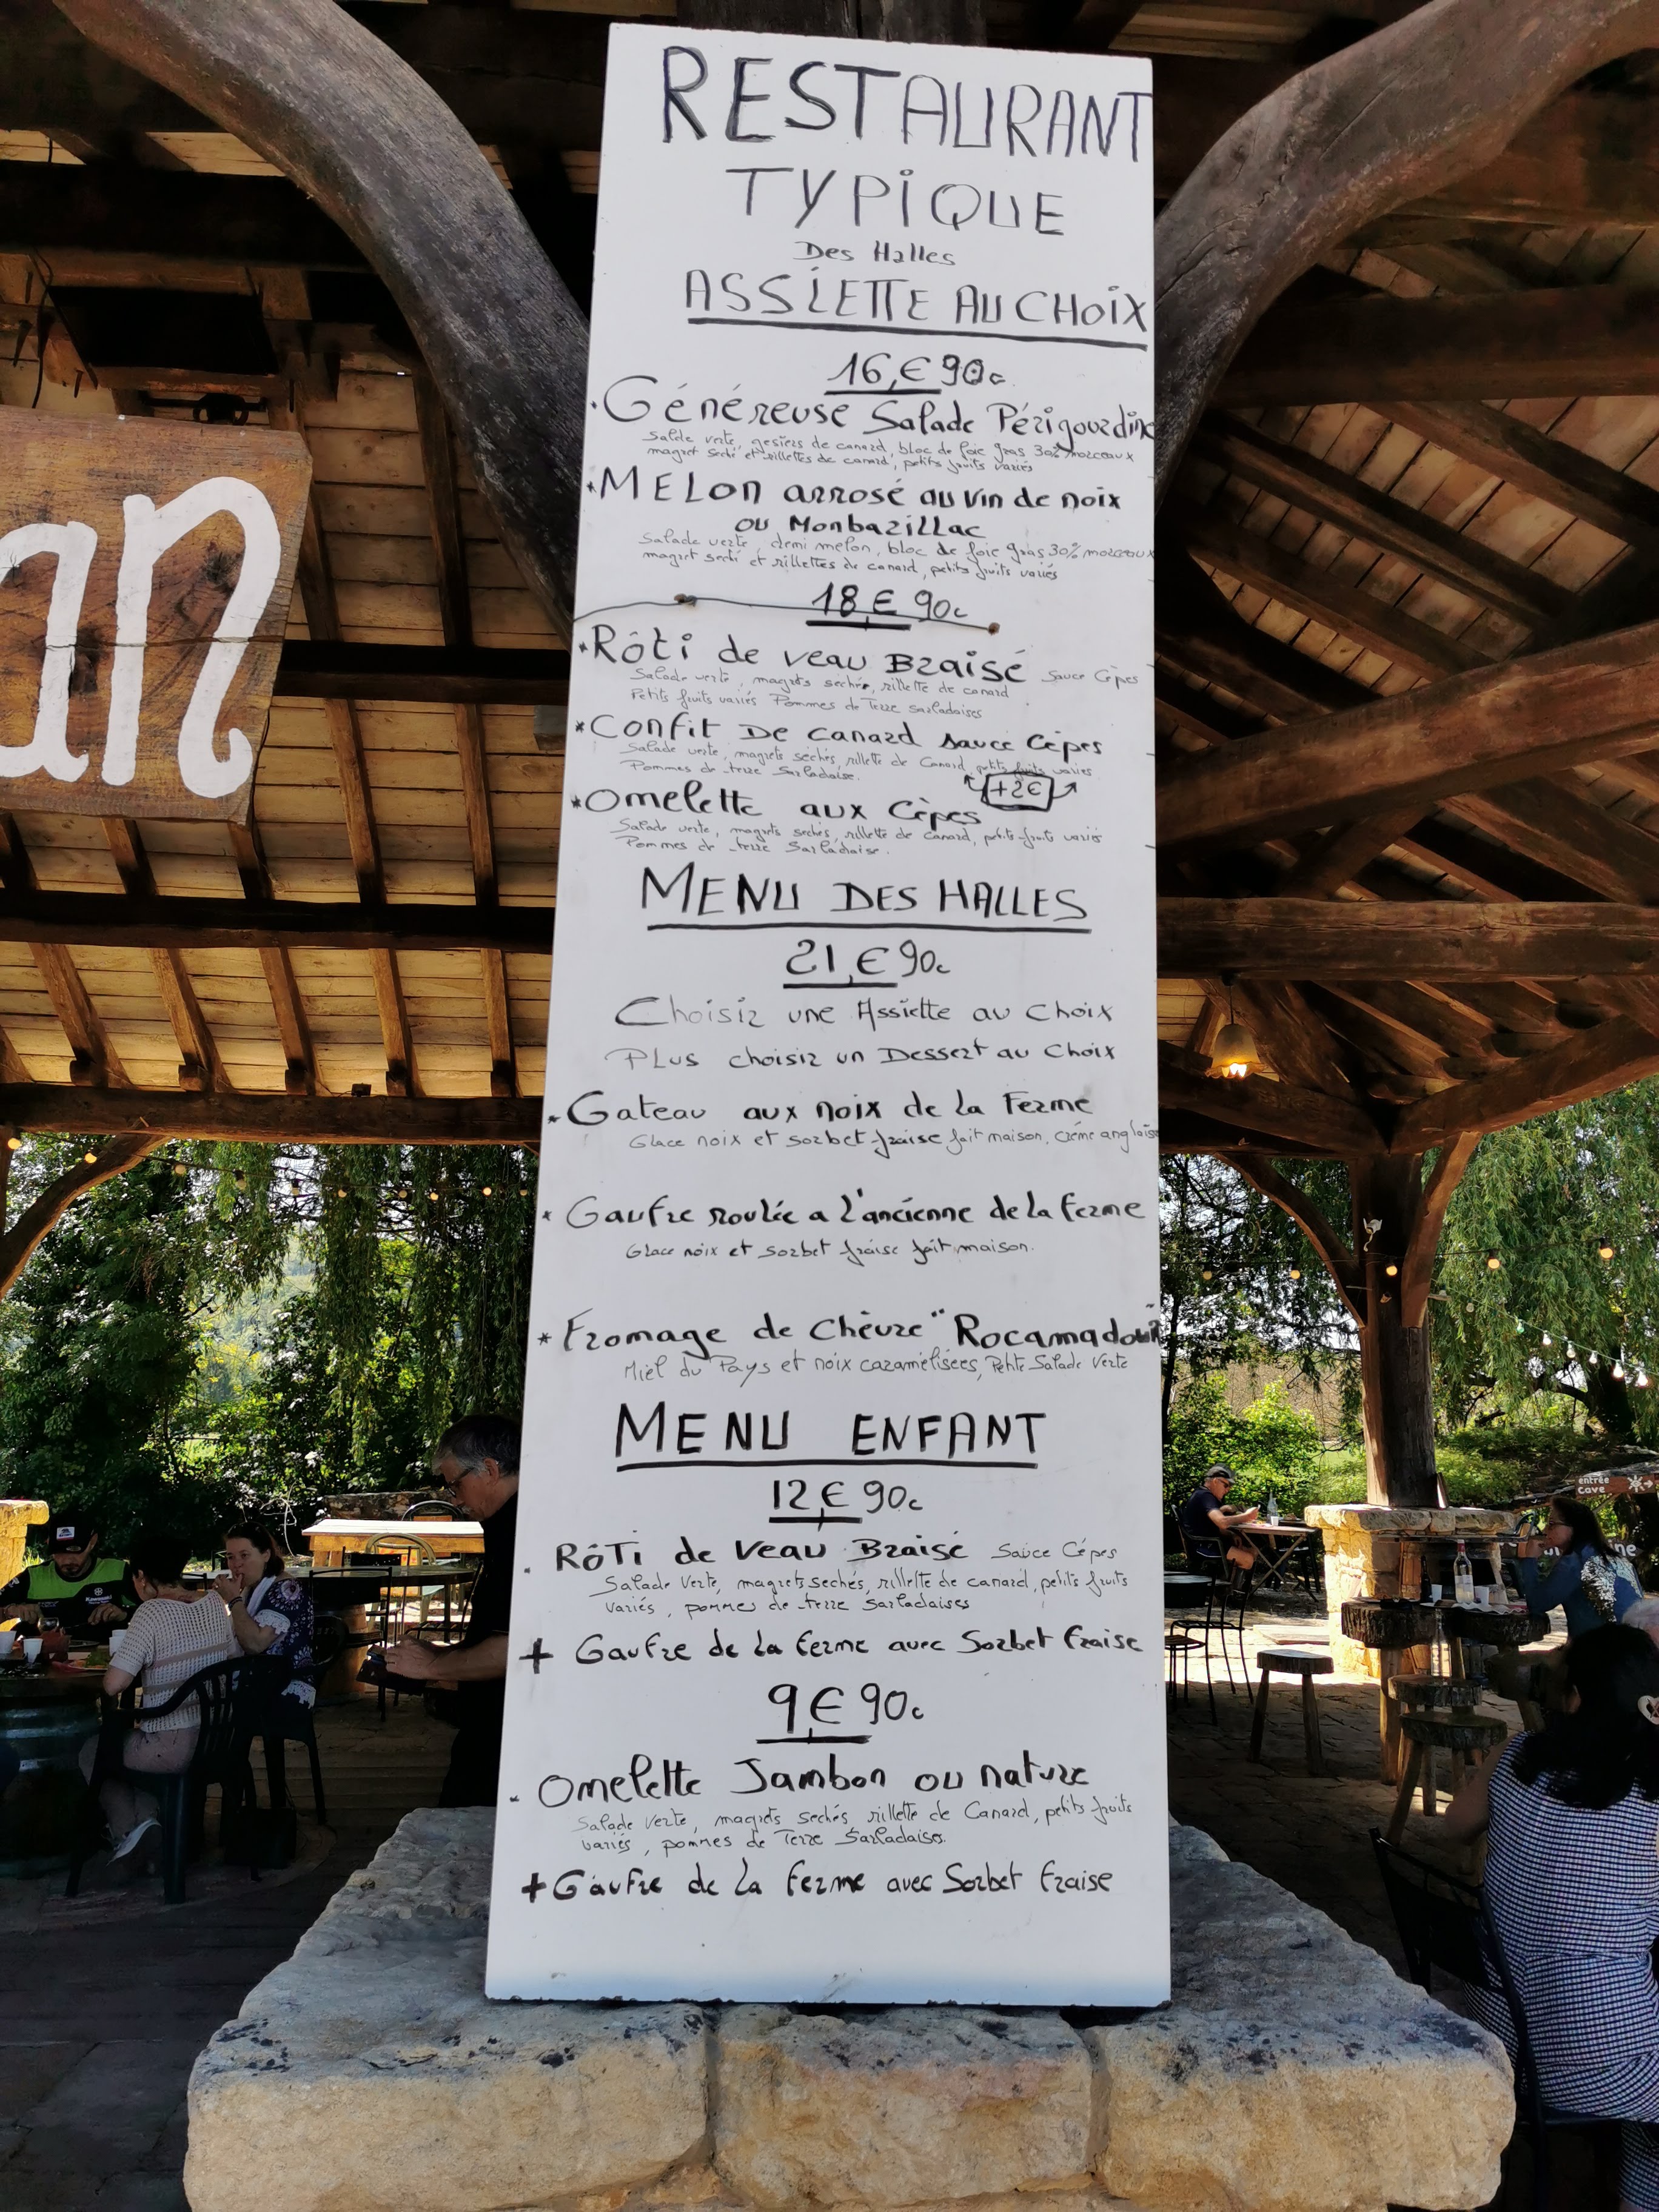 RESTAURANT
TYPIQUE
Des Halles
ASSIETTE AU CHOIX
16,€90c
.Généreuse Salade Périgourdine
Salade verte, gesiers de canard, bloc de foie gras 30% morceaux
magret seché et rillettes de canard, petits fruits variés
*MELON arrosé au vin de noix
ou Monbazillac
Salade verte demi melon, bloc de foie gras 30% morceaux
magret seché et rillettes de canard, petits fruits variés
18 € 90c
*Rôti de veau Braisé Sauce Cèpes
Salade verte, magrets sechés, rillette de canard
Petits fruits variés Pommes de Terre sarladaises
*Confit De canard sauce Cèpes
Salade verte, magrets séchés, rillette de Canard, petits fruits variés
Pommes de terre Sarladaise.
+2€
*Omelette aux Cèpes
Salade verte, magrets sechés, rillette de Canard, petits fruits variés
Pommes de terre Sarladaise.
MENU DES HALLES
21,€90c
Choisir une Assiette au Choix
PLus choisir un Dessert au Choix
*Gateau aux noix de la Ferme
Glace noix et sorbet fraise fait maison, crème anglaise
* Gaufre roulée a l'ancienne de la ferme
Glace noix et sorbet fraise fait maison.
* Fromage de Chèvre "Rocamadour"
Miel du Pays et noix caramélisées, Petite Salade Verte
MENU ENFANT
12€90c
. RôTi de Veau Braisé Sauce Cépes
Salade Verte, magrets sechés, rillette de canard, petits fruits
variés, pommes de terre sarladaises
+ Gaufre de la ferme avec Sorbet fraise
9€90c
. Omelette Jambon ou nature
Salade Verte, magrets sechés rillette de Canard, petits fruits
variés, pommes de Terre Sarladaises.
+Gaufre de la ferme avec Sorbet fraise
an
entrée
cave